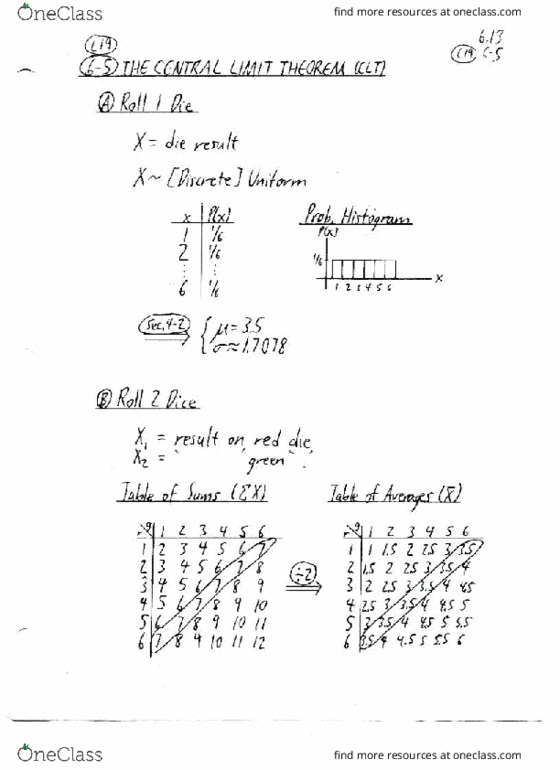 OneClass
find more resources at oneclass.com
L19
6.13
L19 6-5
6-5 THE CENTRAL LIMIT THEOREM (CLT)
A Roll 1 Die
X = die result
X ~ [Discrete] Uniform
x P(x)
1 1/6
2 1/6
⋮ ⋮
6 1/6
Prob. Histogram
P(x)
1/6
1 2 3 4 5 6 x
Sec. 4-2 ⇒ { μ = 3.5
σ ≈ 1.7078
B Roll 2 Dice
X₁ = result on red die
X₂ = " " green " .
Table of Sums (ΣX)
r g 1 2 3 4 5 6
1 2 3 4 5 6 7
2 3 4 5 6 7 8
3 4 5 6 7 8 9
4 5 6 7 8 9 10
5 6 7 8 9 10 11
6 7 8 9 10 11 12
÷2
Table of Averages (X̄)
r g 1 2 3 4 5 6
1 1 1.5 2 2.5 3 3.5
2 1.5 2 2.5 3 3.5 4
3 2 2.5 3 3.5 4 4.5
4 2.5 3 3.5 4 4.5 5
5 3 3.5 4 4.5 5 5.5
6 3.5 4 4.5 5 5.5 6
OneClass
find more resources at oneclass.com